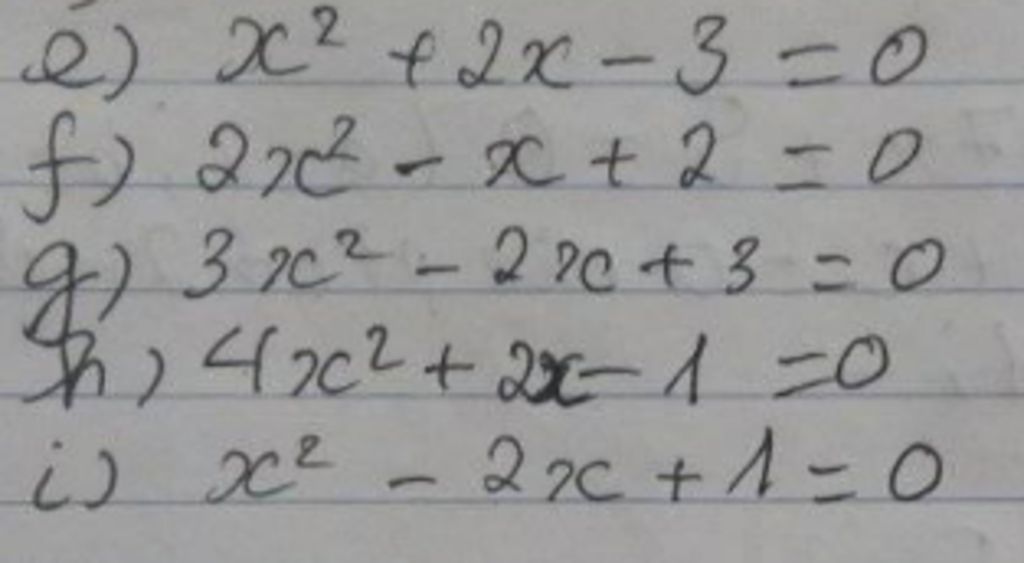 e) x² + 2x - 3 = 0
f) 2x² - x + 2 = 0
g) 3x² - 2x + 3 = 0
h) 4x² + 2x - 1 = 0
i) x² - 2x + 1 = 0